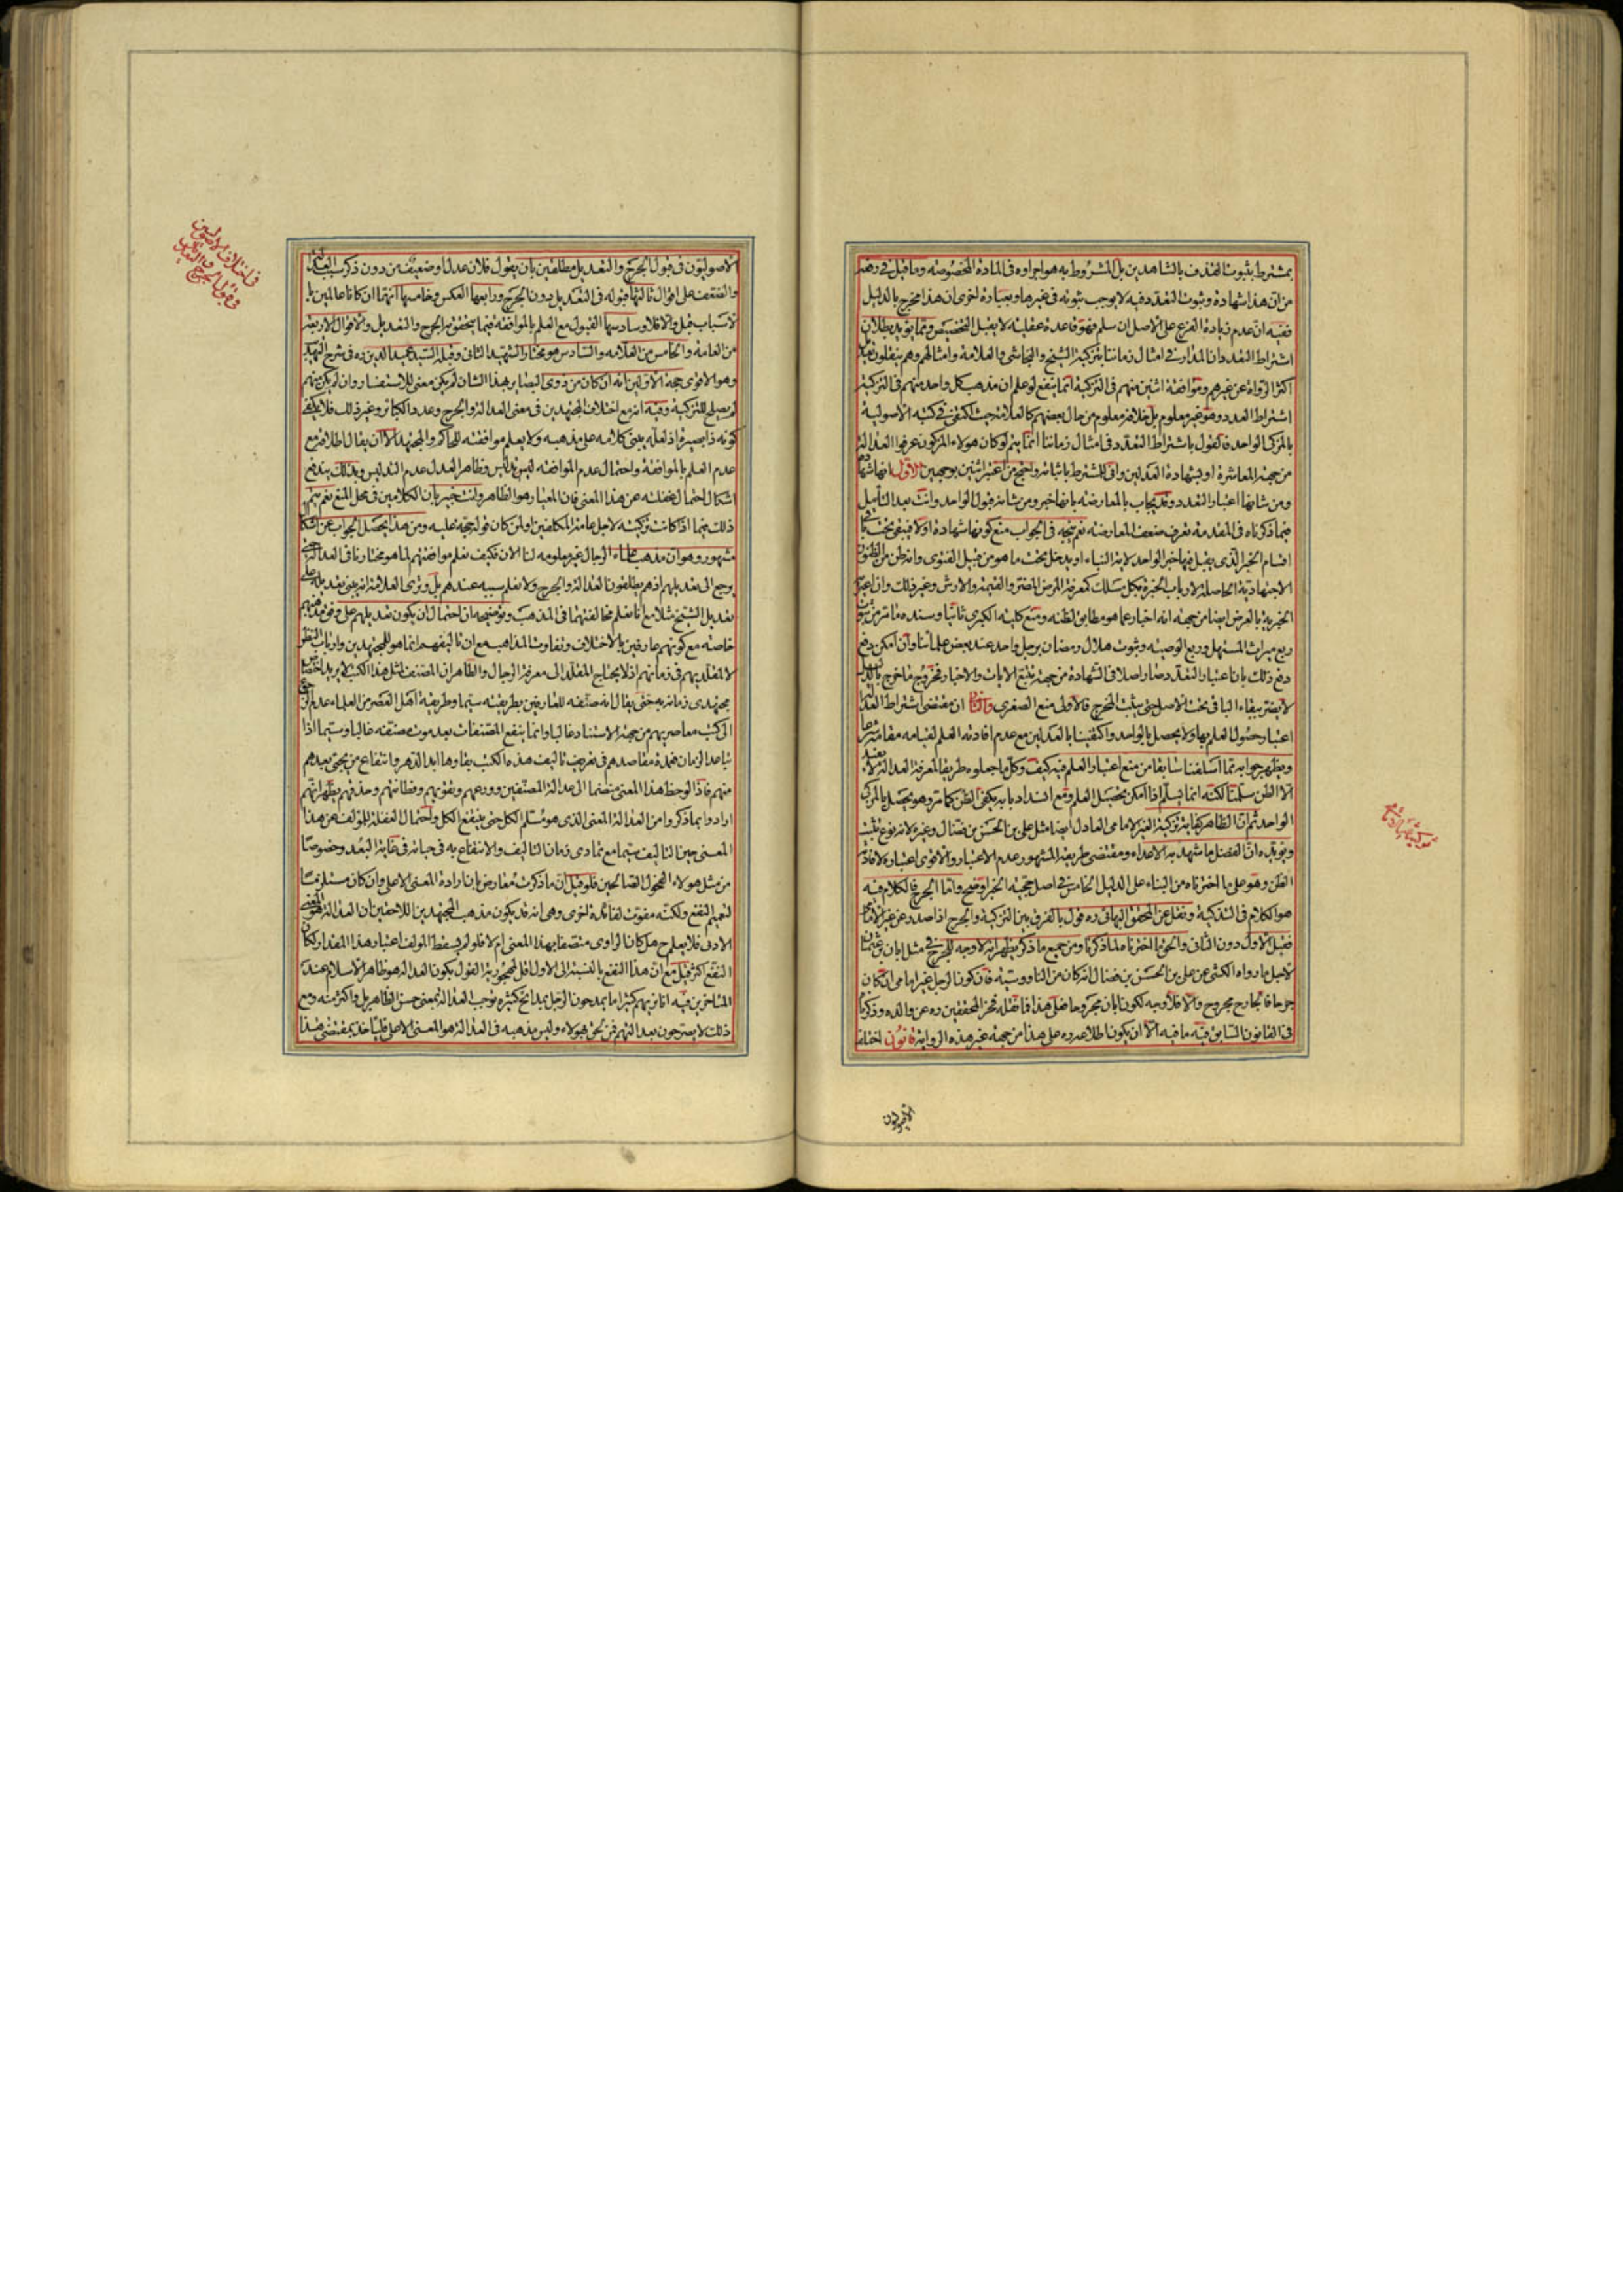 بمشترط بثبوت القذف بالشاهدين بل المشروط به هو اجراؤه في المادة المخصوصة وما قيل في دفعه
من ان هذا شهادة وثبوت التعدد فيه لا يوجب ثبوته في غيرها وبعبارة اخرى ان هذا مخرج بالدليل
ففيه ان عدم زيادة الفرع على الاصل ان سلم فهو قاعدة عقلية لا يقبل التخصيص ومما يؤيد بطلان
اشتراط التعدد ان المدار في امثال زماننا بتزكية الشيخ والنجاشي والعلامة وامثالهم وهم ينقلون تعديل
اكثر الرواة عن غيرهم وموافقة اثنين منهم في التزكية انما ينفع لو علم ان مذهب كل واحد منهم في التزكية
اشتراط العدد وهو غير معلوم بل خلافه معلوم من حال بعضهم كالعلامة حيث اكتفى في كتبه الاصولية
بالمزكي الواحد فالقول باشتراط التعدد في امثال زماننا انما يتم لو كان هؤلاء المزكون عرفوا العدالة
من جهة المعاشرة او بشهادة العدلين واحتج من اعتبر اثنين بوجهين الاول انها شهادة
ومن شانها اعتبار التعدد وقد يجاب بالمعارضة بانها خبر ومن شانه قبول الواحد وانت بعد التأمل
فيما ذكرناه في المقدمة تعرف ضعف المعارضة نعم يتجه في الجواب منع كونها شهادة اولا
اقسام الخبر الذي يقبل فيها خبر الواحد لاية النباء او يدخل تحت ما هو من قبيل الفتوى وانه ظن من الظنون
الاجتهادية الحاصلة لارباب الخبرة بكل مسلك كمعرفة المرض المضر والقيمة والارش وغير ذلك وان اعتبر
الخبرية بالعرض ايضا من جهة انه اخبار عما هو مطابق لظنه ومنع كلية الكبرى ثانيا وسنده ما مر من ثبوت
ربع ميراث المستهل وربع الوصية وثبوت هلال رمضان برجل واحد عند بعض علمائنا وان امكن دفع
دفع ذلك بان اعتبار التعدد صار اصلا في الشهادة من جهة تتبع الايات والاخبار فخروج ما خرج بالدليل
لا يضر ببقاء الباقي تحت الاصل حتى يثبت المخرج فالاولى منع الصغرى والثاني ان مقتضى اشتراط العدالة
اعتبار حصول العلم بها ولا يحصل بالواحد واكتفينا بالعدلين مع عدم افادته العلم لقيامه مقامه شرعا
ويظهر جوابه مما اسلفنا سابقا من منع اعتبار العلم فيه كيف وكل ما جعلوه طريقا لمعرفة العدالة لا يفيد
الا الظن سلمنا لكنه انما يسلم اذا امكن تحصيل العلم ومع انسداد بابه يكفي الظن كما مر وهو يحصل بالمزكي
الواحد ثم ان الظاهر كفاية تزكية الغير الامامي العادل ايضا مثل علي بن الحسن بن فضال وغيره لانه نوع تثبت
ويؤيده ان الفضل ما شهد به الاعداء ومقتضى طريقة المشهور عدم الاعتبار والاقوى اعتباره لافادته
الظن وهو على ما اخترناه من البناء على الدليل الخامس في اصل حجية الخبر اوضح واما الجرح فالكلام فيه
هو الكلام في التزكية ونقل عن المحقق البهائي ره قول بالفرق بين التزكية والجرح اذا صدر عن غير الامامي
فقبل الاول دون الثاني والحق ما اخترناه لما ذكرنا ومن جميع ما ذكر يظهر انه لا وجه للجرح في مثل ابان بن عثمان
لاجل ما رواه الكشي عن علي بن الحسن بن فضال انه كان من الناووسية فان كون الرجل غير امامي ان كان
جرحا فالجارح مجروح والا فلا وجه لكون ابان مجروحا هذا فما نقله فخر المحققين ره عن والده وذكرنا
في القانون السابق فيه ما فيه الا ان يكون اطلاعه ره على هذا من جهة غير هذه الرواية قانون اختلف
الاصوليون
الاصوليون في قبول الجرح والتعديل مطلقين بان يقول فلان عدل او ضعيف من دون ذكر سبب العدالة
والضعف على اقوال ثالثها قبوله في التعديل دون الجرح ورابعها العكس وخامسها انهما ان كانا عالمين با
لاسباب قبل والا فلا وسادسها القبول مع العلم بالموافقة فيما يتحقق به الجرح والتعديل والاقوال الاربعة
من العامة والخامس من العلامة والسادس هو مختار الشهيد الثاني وقبله السيد عميد الدين ره في شرح التهذيب
وهو الاقوى حجة الاولين انه ان كان من ذوي البصاير بهذا الشان لم يكن معنى للاستفسار وان لم يكن منهم
لم يصلح للتزكية وفيه انه مع اختلاف المجتهدين في معنى العدالة والجرح وعدد الكبائر وغير ذلك فلا يكفي
كونه ذا بصيرة اذ لعله يبني كلامه على مذهبه ولا يعلم موافقته للحاكم والمجتهد الا ان يقال اطلاقه مع
عدم العلم بالموافقة واحتمال عدم الموافقة ليس تدليس وظاهر العدل عدم التدليس وبذلك يندفع
اشكال احتمال غفلته عن هذا المعنى فان المعتبار هو الظاهر وانت خبير بان الكلامين في محل المنع نعم يتم
ذلك فيما اذا كانت تزكيته لاجل عامة المكلفين او لمن كان قوله حجة عليه ومن هذا يحصل الجواب عن اشكال
مشهور وهو ان مذهب علماء الرجال غير معلومه لنا الان فكيف نعلم موافقتهم لما هو مختارنا في العدالة حتى
يرجع الى تعديلهم اذ هم يطلقون العدالة والجرح ولا نعلم سببه عندهم بل ونرى العلامة انه يبني تعديله على
تعديل الشيخ مثلا مع انا نعلم مخالفتهما في المذهب وتوضيحه ان احتمال ان يكون تعديلهم على وفق مذهبهم
خاصة مع كونهم عارفين بالاختلاف وتفاوت المذاهب مع ان تاليفهم انما هو للمجتهدين وارباب النظر
لا لمقلديهم في زمانهم اذ لا يحتاج المقلد الى معرفة الرجال والظاهر ان المصنف لمثل هذا الكتب لا يريد اختصاص
مجتهدي زمانه به حتى يقال انه صنفه للعارفين بطريقته سيما وطريقة اهل العصر من العلماء عدم الرجوع
الى كتب معاصريهم من جهة الاستناد غالبا وانما ينفع المصنفات بعد موت مصنفه غالبا وسيما اذا
تباعد الزمان فعمدة مقاصدهم في تصنيف هذه الكتب بقاؤها ابد الدهر وانتفاع من يجيء بعدهم
منهم فاذا لوحظ هذا المعنى منضما الى عدالة المصنفين وورعهم وتقويهم وفطانتهم وحذقهم يظهر انهم
ارادوا بما ذكروا من العدالة المعنى الذي هو مسلم الكل حتى ينتفع الكل واحتمال الغفلة للمؤلف عن هذا
المعنى حين التاليف سيما مع تمادي زمان التاليف والانتفاع به في حياته في غاية البعد وخصوصا
من مثل هؤلاء الفحول الصالحين فلو قيل ان ما ذكرت معارض بان ارادة المعنى الاعلى وان كان مستلزما
لتعميم النفع ولكنه مفوت لفائدة اخرى وهي انه قد يكون مذهب المجتهدين اللاحقين ان العدالة هو المعنى
الادنى فلا يعلم ح هل كان الراوي متصفا بهذا المعنى ام لا فلو لم يسقط المؤلف اعتبار هذا المقدار لكان
النفع اكثر قيل مع ان هذا النفع بالنسبة الى الاول اقل لهجورية القول بكون العدالة هو ظاهر الاسلام عند
المتاخرين فيه انا نريهم كثيرا ما يمدحون الرجل بمدائح كثيرة توجب العدالة بمعنى حسن الظاهر بل واكثر منه ومع
ذلك لا يصرحون بعدالتهم فمن نحو هؤلاء وليس مذهبه في العدالة هو المعنى الاعلى فليأخذ بمقتضى هذا
في اختلاف الاصوليين
في قبول الجرح
والتعديل